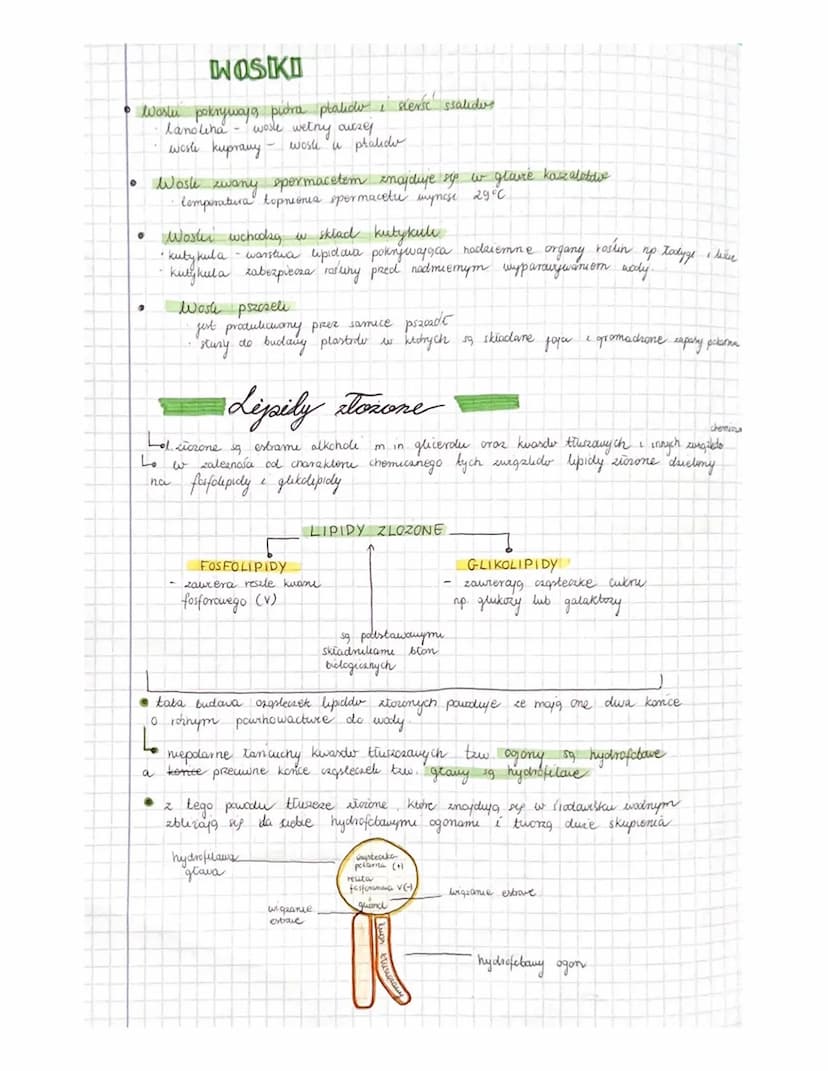 WOSKI
Woski pokrywają pióra ptaków i sierść ssaków
· lanolina - wosk wełny owczej
· wosk kuprowy - wosk u ptaków
Wosk zwany spermacetem znajduje się w głowie kaszalotów
· temperatura topnienia spermacetu wynosi 29°C
Woski wchodzą w skład kutykuli
· kutykula - warstwa lipidowa pokrywająca nadziemne organy roślin np łodygi i liście
· kutykula zabezpiecza rośliny przed nadmiernym wyparowywaniem wody.
Wosk pszczeli
· jest produkowany przez samice pszczół
· służy do budowy plastrów w których są składane jaja i gromadzone zapasy pokarmu
Lipidy złożone
chemiczn
l. złożone są estrami alkoholi m.in glicerolu oraz kwasów tłuszczowych i innych związków
w zależności od charakteru chemicznego tych związków lipidy złożone dzielimy
na fosfolipidy i glikolipidy
LIPIDY ZŁOŻONE
FOSFOLIPIDY
GLIKOLIPIDY
- zawiera resztę kwasu
fosforowego (V)
- zawierają cząsteczkę cukru
np. glukozy lub galaktozy
są podstawowymi
składnikami błon
biologicznych
taka budowa cząsteczek lipidów złożonych powoduje że mają one dwa końce
o różnym powinowactwie do wody.
niepolarne łańcuchy kwasów tłuszczowych tzw. ogony są hydrofobowe
a końce przeciwne końce cząsteczek tzw. głowy są hydrofilowe
z tego powodu tłuszcze złożone, które znajdują się w środowisku wodnym
zbliżają się do siebie hydrofobowymi ogonami i tworzą duże skupienia
hydrofilowa
głowa
cząsteczka
polarna (+)
reszta
fosforanowa V(-)
glicerol
wiązanie estrowe
wiązanie
estrowe
kwas tłuszczowy
hydrofobowy ogon